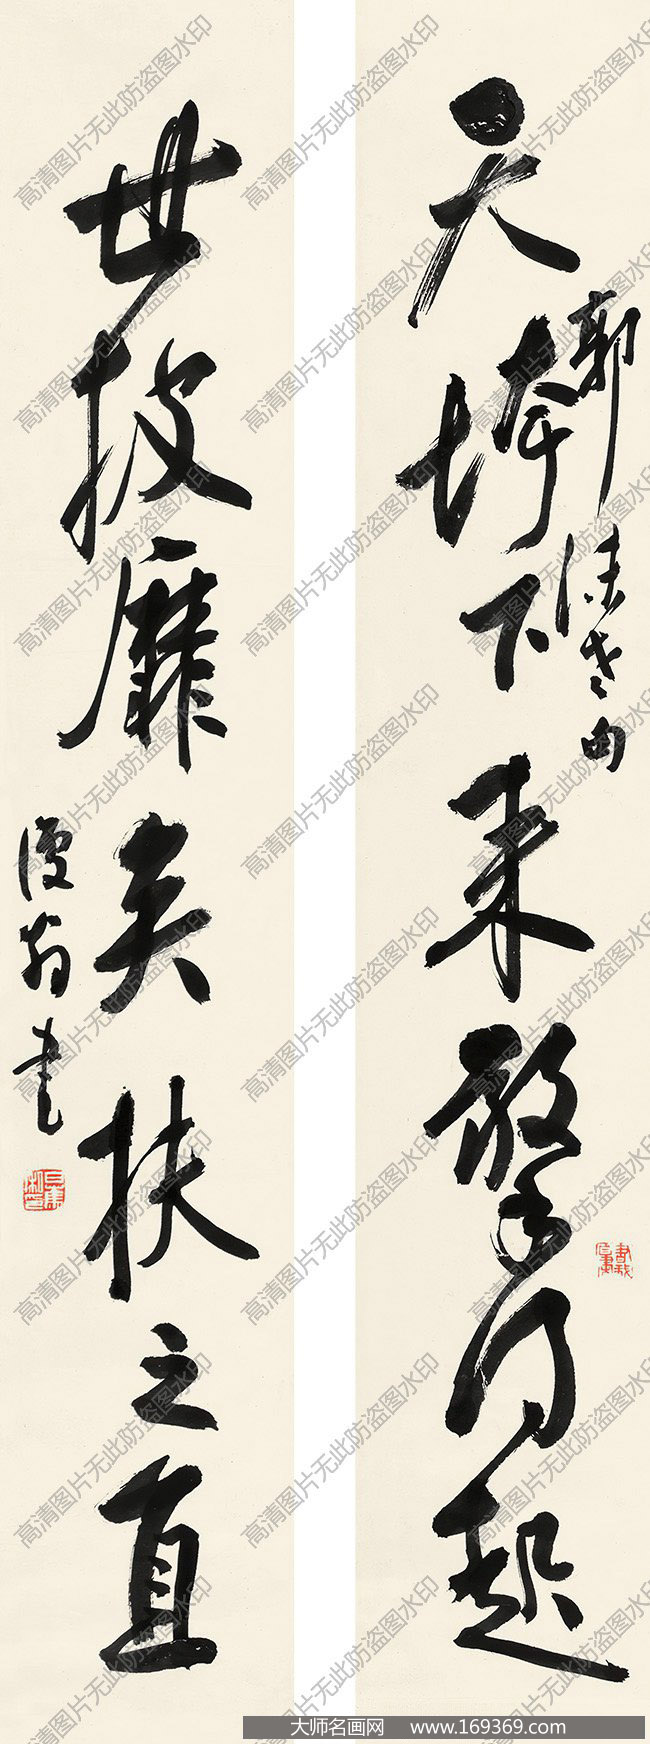 天垮下来擎得起
郭沫老句
世披靡矣扶之直
漫翁书
高清图片无此防盗图水印
大师名画网 www.169369.com